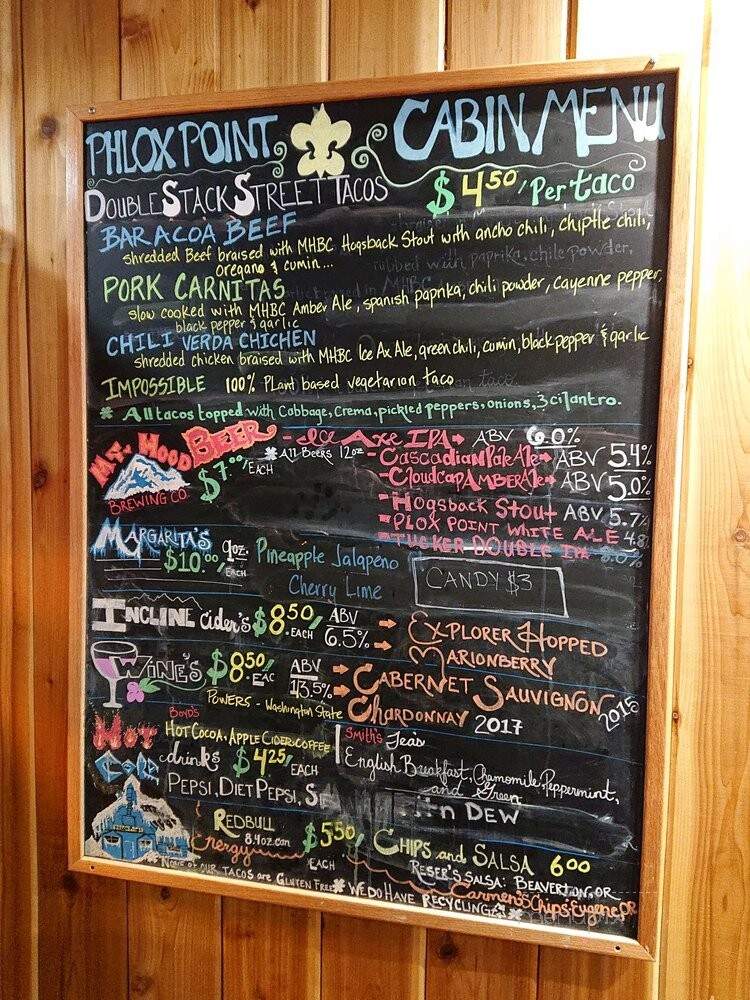 PHLOX POINT CABIN MENU
DOUBLE STACK STREET TACOS $4.50/Per taco
BARACOA BEEF
shredded Beef braised with MHBC Hogsback Stout with ancho chili, chiptle chili,
oregano & cumin...
rubbed with paprika, chile powder,
PORK CARNITAS
slow cooked with MHBC Amber Ale, spanish paprika, chili powder, cayenne pepper,
black pepper & garlic
CHILI VERDA CHICHEN
shredded chicken braised with MHBC Ice Ax Ale, green chili, cumin, black pepper & garlic
IMPOSSIBLE 100% Plant based vegetarian taco
* All tacos topped with Cabbage, Crema, pickled peppers, onions, & cilantro.
MT. HOOD BEER
BREWING CO.
$7.00/EACH
* All Beers 12oz
- Ice Axe IPA → ABV 6.0%
- Cascadian Pale Ale → ABV 5.4%
- Cloudcap AMBER Ale → ABV 5.0%
- Hogsback Stout ABV 5.7%
- PLOX POINT WHITE ALE 4.8%
- TUCKER DOUBLE IPA 8.0%
MARGARITA'S 9oz. Pineapple Jalapeño
$10.00/EACH Cherry Lime
CANDY $3
INCLINE cider's $8.50/EACH ABV 6.5% → EXPLORER HOPPED
→ MARIONBERRY
WINE'S $8.50/EAC ABV 13.5% → CABERNET SAUVIGNON 2015
→ CHARDONNAY 2017
POWERS - Washington State
Hot BOYDS
HOT COCOA, APPLE CIDER, COFFEE
Cold drinks $4.25/EACH
Smith's Teas
English Breakfast, Chamomile, Peppermint,
and Green
PEPSI, DIET PEPSI, DEW
REDBULL 8.4oz can $5.50/EACH
Energy
CHIPS and SALSA 6.00
RESER'S SALSA: BEAVERTON, OR
Carmen's Chips: Eugene OR
* None of our TACOS are GLUTEN FREE * WE DO HAVE RECYCLING *